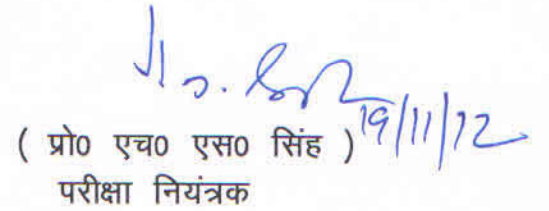 19/11/12
( प्रो0 एच0 एस0 सिंह )
परीक्षा नियंत्रक